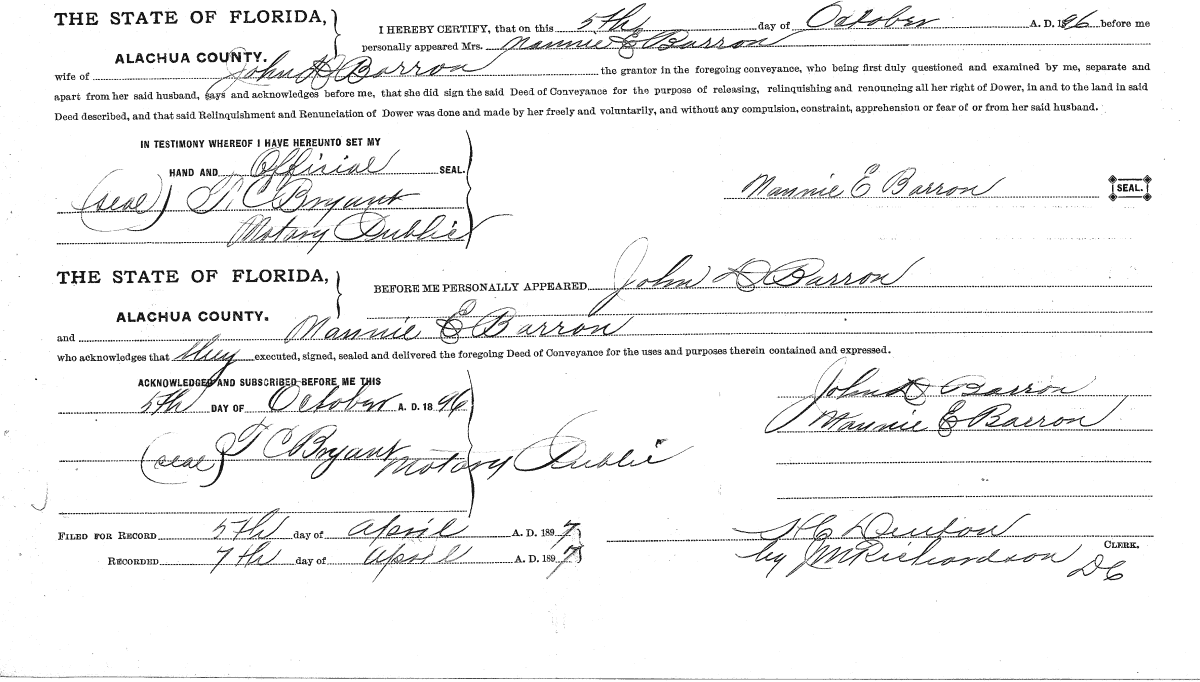 THE STATE OF FLORIDA,
ALACHUA COUNTY.
I HEREBY CERTIFY, that on this 5th day of October A. D. 1896 before me
personally appeared Mrs. Nannie E Barron
wife of John D Barron the grantor in the foregoing conveyance, who being first duly questioned and examined by me, separate and
apart from her said husband, says and acknowledges before me, that she did sign the said Deed of Conveyance for the purpose of releasing, relinquishing and renouncing all her right of Dower, in and to the land in said
Deed described, and that said Relinquishment and Renunciation of Dower was done and made by her freely and voluntarily, and without any compulsion, constraint, apprehension or fear of or from her said husband.
IN TESTIMONY WHEREOF I HAVE HEREUNTO SET MY
HAND AND Official SEAL.
(seal) T. C Bryant
Notary Public
Nannie E Barron SEAL.
THE STATE OF FLORIDA,
ALACHUA COUNTY.
BEFORE ME PERSONALLY APPEARED John D Barron
and Nannie E Barron
who acknowledges that they executed, signed, sealed and delivered the foregoing Deed of Conveyance for the uses and purposes therein contained and expressed.
ACKNOWLEDGED AND SUBSCRIBED BEFORE ME THIS
5th DAY OF October A. D. 1896
(seal) T C Bryant Notary Public
John D Barron
Nannie E Barron
FILED FOR RECORD 5th day of April A. D. 1897
RECORDED 7th day of April A. D. 1897
H C Denton CLERK.
by J M Richardson DC